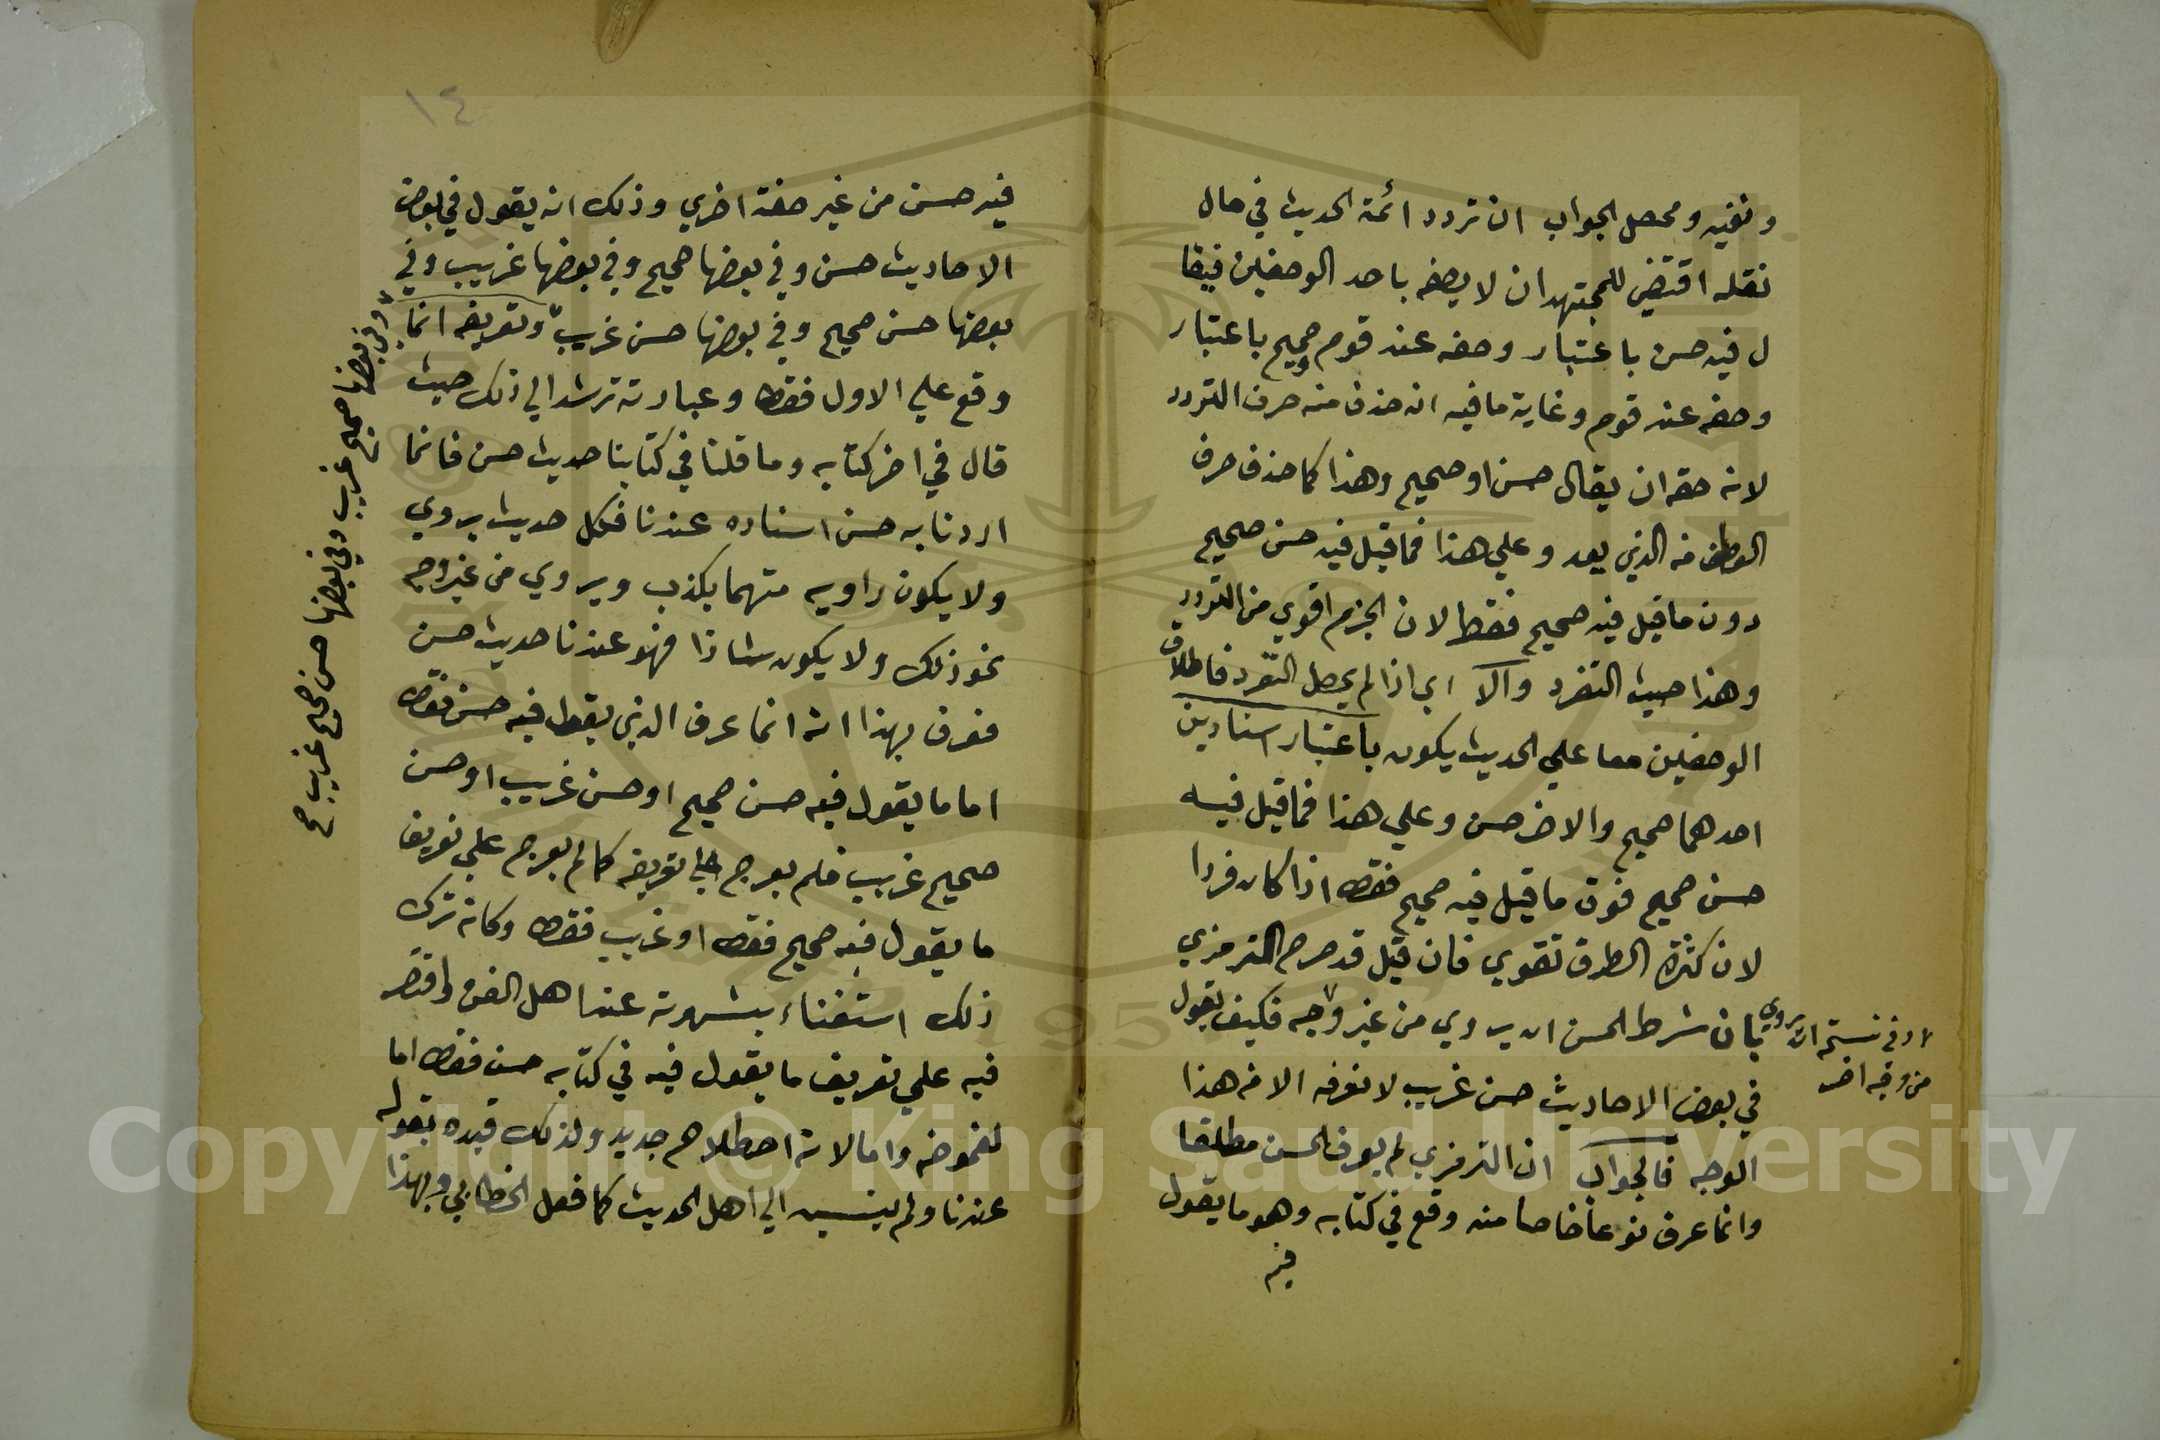 ونفيه ومحصل الجواب ان تردد ائمة الحديث في حال
نقله اقتضي للمجتهد ان لا يصفه باحد الوصفين فيقا
ل فيه حسن باعتبار وصفه عند قوم صحيح باعتبار
وصفه عند قوم وغاية ما فيه انه حذف منه حرف التردد
لانه حقه ان يقال حسن او صحيح وهذا كما حذف حرف
العطف من الذي يعد وعلي هذا فما قيل فيه حسن صحيح
دون ما قيل فيه صحيح فقط لان الجزم اقوي من التردد
وهذا حيث التفرد والا اي اذا لم يحصل التفرد فاطلاق
الوصفين معا علي الحديث يكون باعتبار اسنادين
احدهما صحيح والاخر حسن وعلي هذا فما قيل فيه
حسن صحيح فوق ما قيل فيه صحيح فقط اذا كان فردا
لان كثرة الطرق تقوي فان قيل قد صرح الترمزي
بان شرط الحسن ان يروي من غير وجه فكيف يقول
في بعض الاحاديث حسن غريب لا نعرفه الا من هذا
الوجه فالجواب ان الترمزي لم يعرف الحسن مطلقا
وانما عرف نوعا خاصا منه وقع في كتابه وهو ما يقول
فيه
وفي نسخة ان يروي
من وجه اخر
١٤
فيه حسن من غير صفة اخري وذلك انه يقول في بعض
الاحاديث حسن وفي بعضها صحيح وفي بعضها غريب وفي
بعضها حسن صحيح وفي بعضها حسن غريب وتعريفه انما
وقع علي الاول فقط وعبارته ترشد الي ذلك حيث
قال في اخر كتابه وما قلنا في كتابنا حديث حسن فانما
اردنا به حسن اسناده عندنا فكل حديث يروي
ولا يكون راويه متهما بكذب ويروي من غير وجه
نحو ذلك ولا يكون شاذا فهو عندنا حديث حسن
فعرف بهذا انه انما عرف الذي يقول فيه حسن فقط
اما ما يقول فيه حسن صحيح او حسن غريب او حسن
صحيح غريب فلم يعرج علي تعريفه كما لم يعرج علي تعريف
ما يقول فيه صحيح فقط او غريب فقط وكانه ترك
ذلك استغناء بشهرته عند اهل الفن واقتصر
فيه علي تعريف ما يقول فيه في كتابه حسن فقط اما
لغموضه واما لانه اصطلاح جديد ولذلك قيده بقوله
عندنا ولم ينسبه الي اهل الحديث كما فعل الخطابي وبهذا
وفي بعضها صحيح غريب وفي بعضها حسن صحيح غريب صح
Copyright © King Saud University
1957